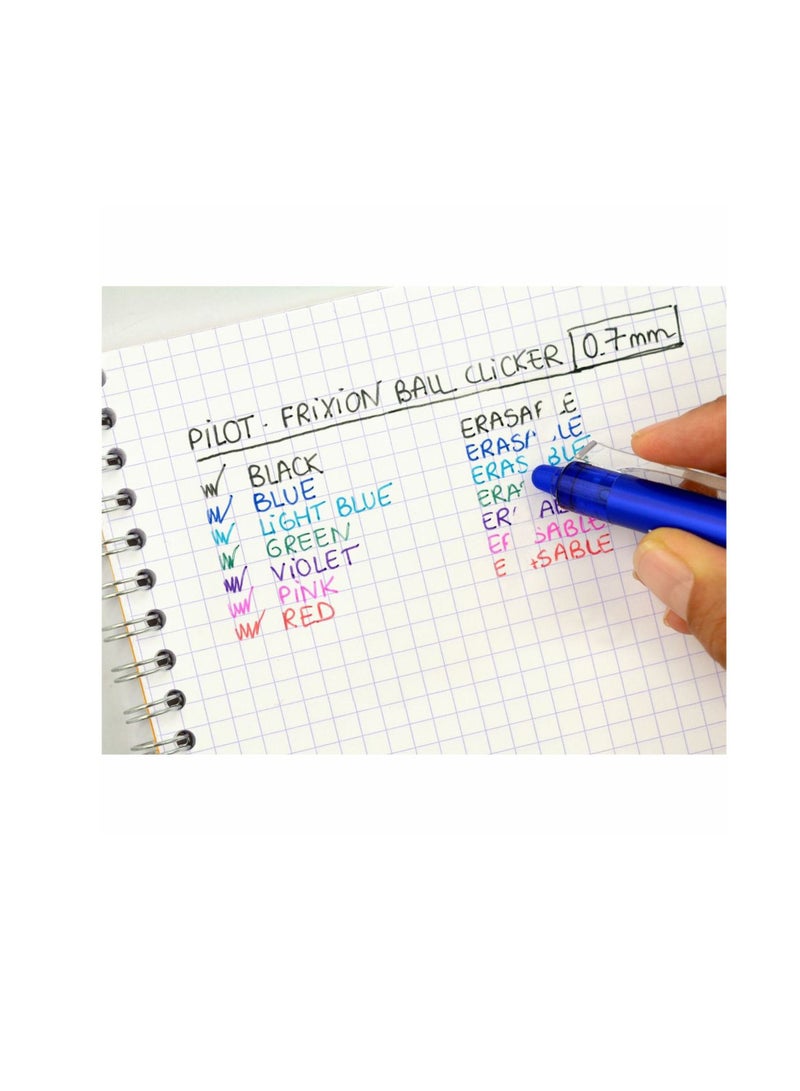 PiLOT - FRiXiON BALL CLiCKER 0.7mm
BLACK
BLUE
LiGHT BLUE
GREEN
ViOLET
PiNK
RED
ERASA E
ERAS LE
ERAS BLE
ERA
ER AB
ER SABLE
E SABLE